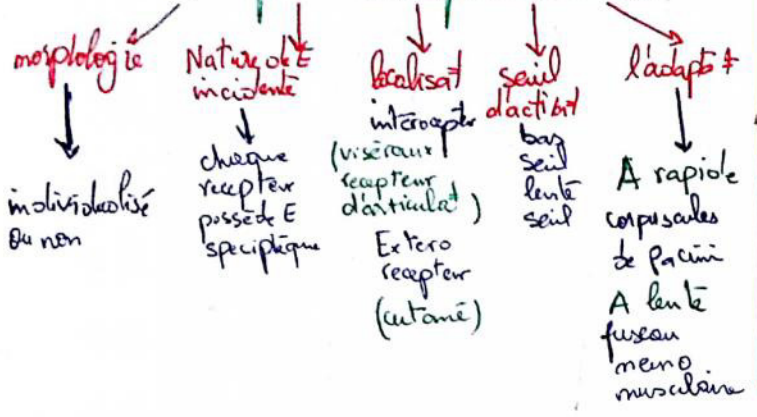 morphologie
individualisé
ou non
Nature de E
incidente
chaque
recepteur
possède E
specipteque
localisat°
intérocepte
(viséraux
recepteur
d'articulat°)
Extero
recepteur
(cutané)
seuil
d'activat°
bas
seuil
lente
seuil
l'adapt° ≠
A rapide
corpuscules
de pacini
A lente
fuseau
neuro
musculaire